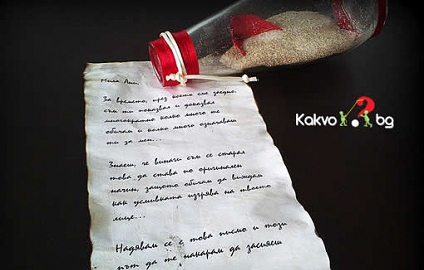 Мила Ани,
За времето, през което сме заедно,
съм ти показвал и доказвал
многократно колко много те
обичам и колко много означаваш
ти за мен...
Знаеш, че винаги съм се старал
това да става по оригинален
начин, защото обичам да виждам
как усмивката изгрява на твоето
лице...
Надявам се с това писмо и този
път да те накарам да засияеш
Kakvo ? bg